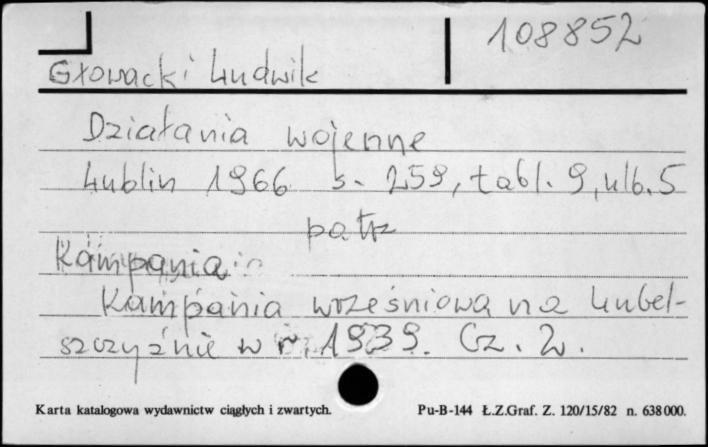 108852
Głowacki Ludwik
Działania wojenne
Lublin 1966 s. 259, tabl. 9, ulb. 5
patrz
Kampania
Kampania wrześniowa na Lubel-
szczyźnie w r. 1939. Cz. 2.
Karta katalogowa wydawnictw ciągłych i zwartych. Pu-B-144 Ł.Z.Graf. Z. 120/15/82 n. 638000.